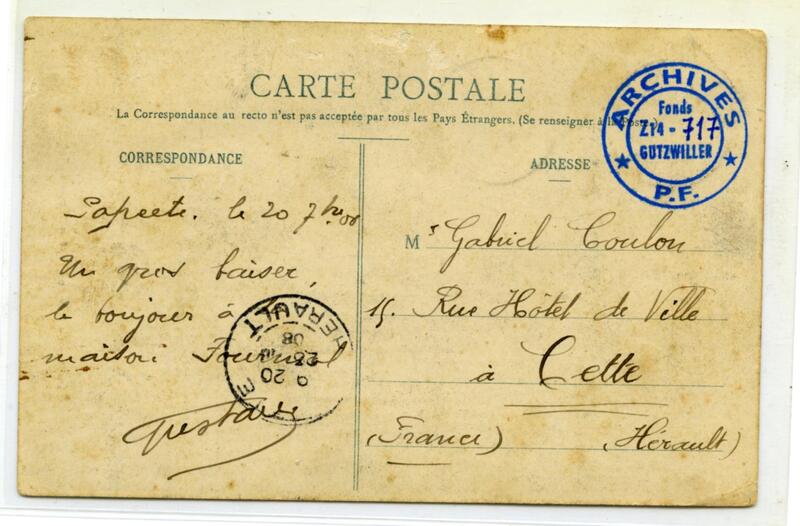 CARTE POSTALE
La Correspondance au recto n'est pas acceptée par tous les Pays Étrangers. (Se renseigner à la Poste.)
ARCHIVES
Fonds
Z14 - 717
GUTZWILLER
P.F.
CORRESPONDANCE
Papeete. le 20 7bre 08
Un gros baiser,
le bonjour à la
maison Fournel
Gustave
HERAULT
9 20 M
23
08
ADRESSE
Mr Gabriel Coulon
15. Rue Hôtel de Ville
à Cette
(France) (Hérault)